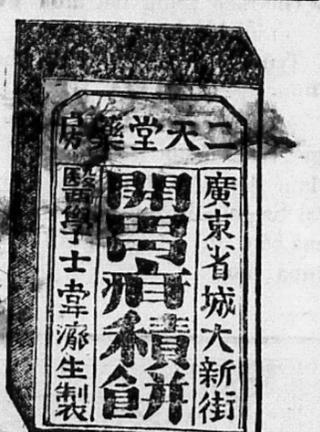 二天堂藥房
廣東省城大新街
開胃疳積餅
醫學士韋生製